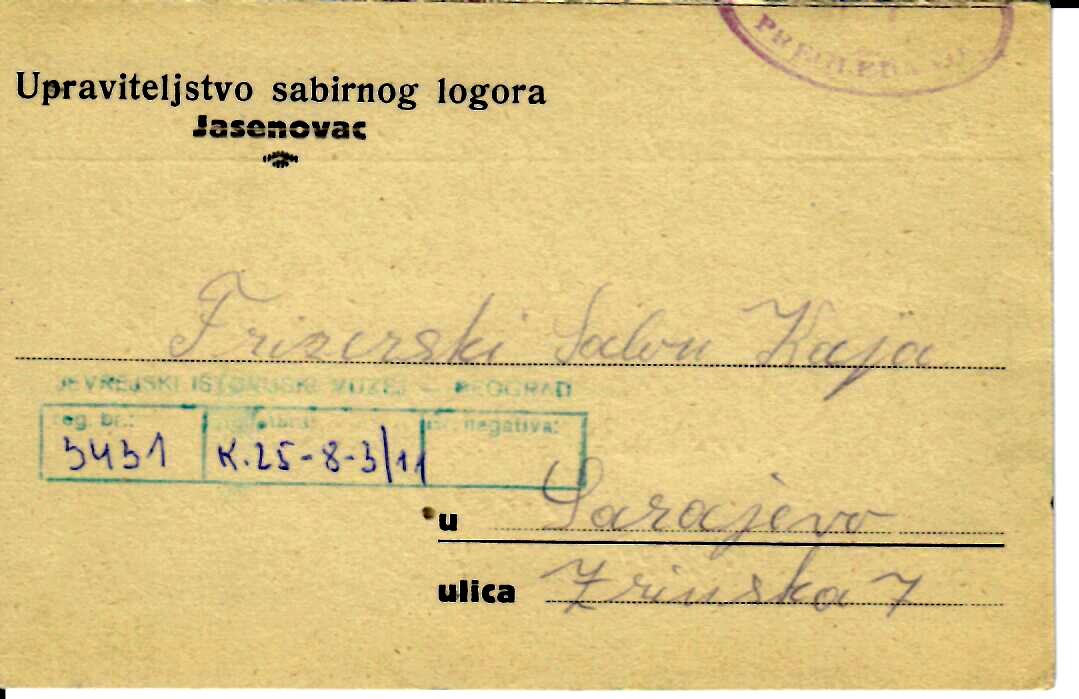 PREGLEDANO
Upraviteljstvo sabirnog logora
Jasenovac
Frizerski Salon Kaja
JEVREJSKI ISTORIJSKI MUZEJ — BEOGRAD
reg. br.: signatura: br. negativa:
3431 K.25-8-3/11
u Sarajevo
ulica Zrinska 7